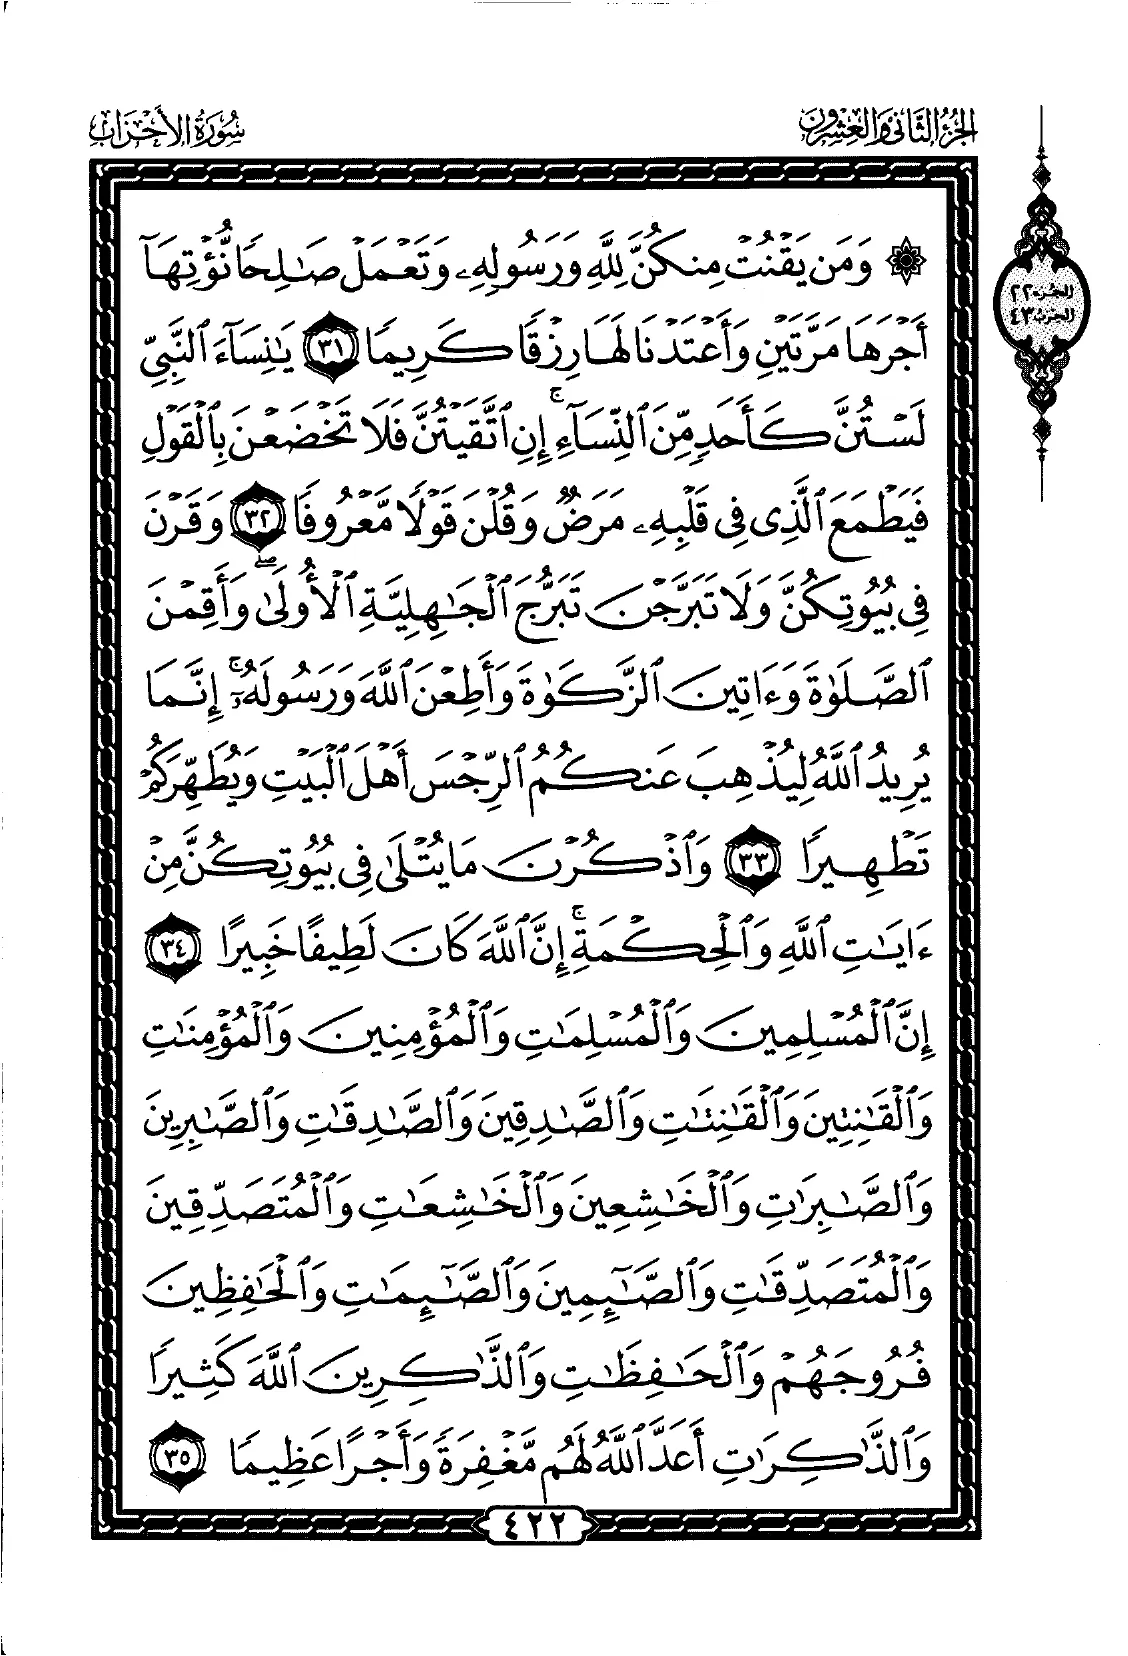 الجزء الثاني والعشرون
سورة الأحزاب
الجزء ٢٢
الحزب ٤٣
۞ وَمَن يَقْنُتْ مِنكُنَّ لِلَّهِ وَرَسُولِهِۦ وَتَعْمَلْ صَـٰلِحًا نُّؤْتِهَآ
أَجْرَهَا مَرَّتَيْنِ وَأَعْتَدْنَا لَهَا رِزْقًا كَرِيمًا ٣١ يَـٰنِسَآءَ ٱلنَّبِىِّ
لَسْتُنَّ كَأَحَدٍ مِّنَ ٱلنِّسَآءِ ۚ إِنِ ٱتَّقَيْتُنَّ فَلَا تَخْضَعْنَ بِٱلْقَوْلِ
فَيَطْمَعَ ٱلَّذِى فِى قَلْبِهِۦ مَرَضٌ وَقُلْنَ قَوْلًا مَّعْرُوفًا ٣٢ وَقَرْنَ
فِى بُيُوتِكُنَّ وَلَا تَبَرَّجْنَ تَبَرُّجَ ٱلْجَـٰهِلِيَّةِ ٱلْأُولَىٰ ۖ وَأَقِمْنَ
ٱلصَّلَوٰةَ وَءَاتِينَ ٱلزَّكَوٰةَ وَأَطِعْنَ ٱللَّهَ وَرَسُولَهُۥٓ ۚ إِنَّمَا
يُرِيدُ ٱللَّهُ لِيُذْهِبَ عَنكُمُ ٱلرِّجْسَ أَهْلَ ٱلْبَيْتِ وَيُطَهِّرَكُمْ
تَطْهِيرًا ٣٣ وَٱذْكُرْنَ مَا يُتْلَىٰ فِى بُيُوتِكُنَّ مِنْ
ءَايَـٰتِ ٱللَّهِ وَٱلْحِكْمَةِ ۚ إِنَّ ٱللَّهَ كَانَ لَطِيفًا خَبِيرًا ٣٤
إِنَّ ٱلْمُسْلِمِينَ وَٱلْمُسْلِمَـٰتِ وَٱلْمُؤْمِنِينَ وَٱلْمُؤْمِنَـٰتِ
وَٱلْقَـٰنِتِينَ وَٱلْقَـٰنِتَـٰتِ وَٱلصَّـٰدِقِينَ وَٱلصَّـٰدِقَـٰتِ وَٱلصَّـٰبِرِينَ
وَٱلصَّـٰبِرَٰتِ وَٱلْخَـٰشِعِينَ وَٱلْخَـٰشِعَـٰتِ وَٱلْمُتَصَدِّقِينَ
وَٱلْمُتَصَدِّقَـٰتِ وَٱلصَّـٰٓئِمِينَ وَٱلصَّـٰٓئِمَـٰتِ وَٱلْحَـٰفِظِينَ
فُرُوجَهُمْ وَٱلْحَـٰفِظَـٰتِ وَٱلذَّٰكِرِينَ ٱللَّهَ كَثِيرًا
وَٱلذَّٰكِرَٰتِ أَعَدَّ ٱللَّهُ لَهُم مَّغْفِرَةً وَأَجْرًا عَظِيمًا ٣٥
٤٢٢